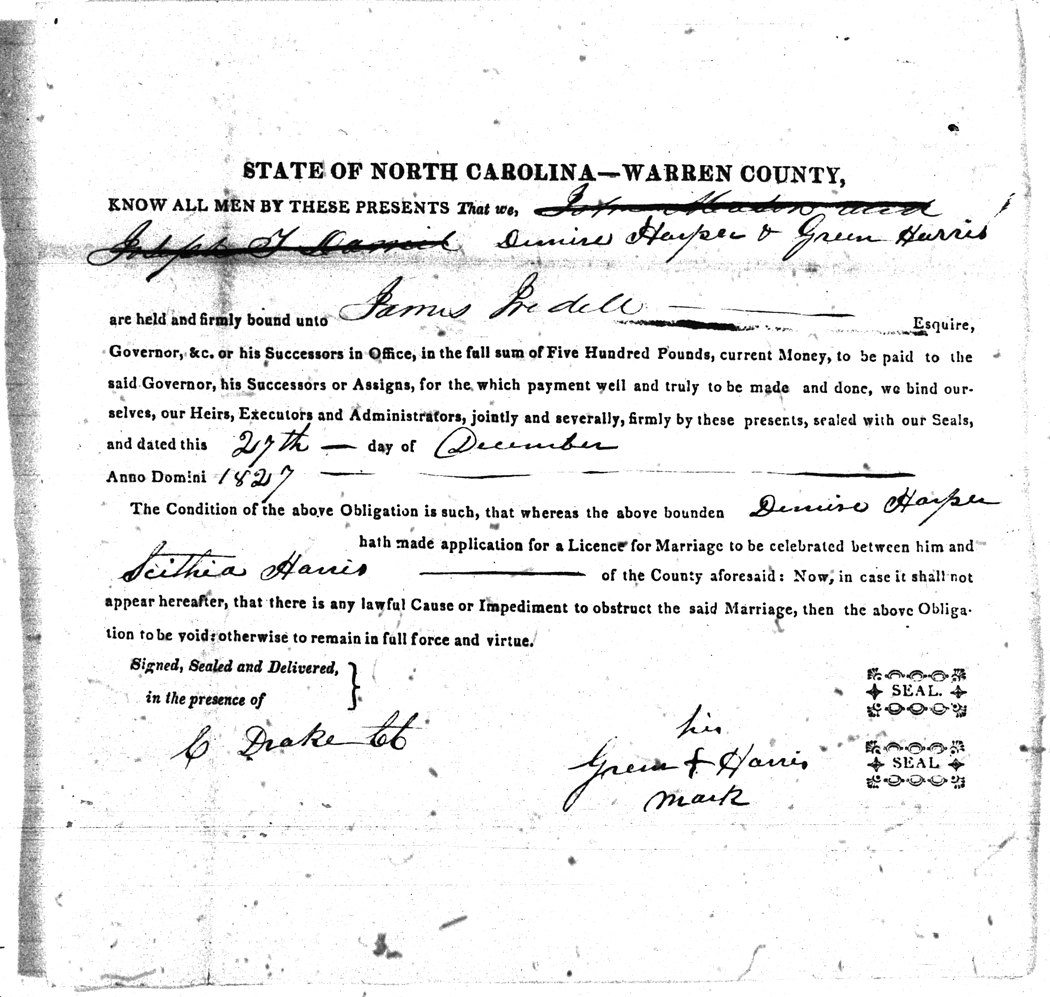 STATE OF NORTH CAROLINA—WARREN COUNTY,
KNOW ALL MEN BY THESE PRESENTS That we, John and
Joseph T Daniel Demire Harper & Green Harris
are held and firmly bound unto James Iredell Esquire,
Governor, &c. or his Successors in Office, in the full sum of Five Hundred Pounds, current Money, to be paid to the
said Governor, his Successors or Assigns, for the which payment well and truly to be made and done, we bind our-
selves, our Heirs, Executors and Administrators, jointly and severally, firmly by these presents, sealed with our Seals,
and dated this 27th — day of December
Anno Domini 1827
The Condition of the above Obligation is such, that whereas the above bounden Demire Harper
hath made application for a Licence for Marriage to be celebrated between him and
Scithia Harris of the County aforesaid: Now, in case it shall not
appear hereafter, that there is any lawful Cause or Impediment to obstruct the said Marriage, then the above Obliga-
tion to be void: otherwise to remain in full force and virtue.
Signed, Sealed and Delivered,
in the presence of
C Drake Ct
his
Green + Harris
mark
SEAL.
SEAL